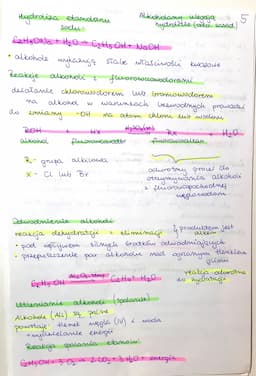 Hydroliza etanolanu sodu
Alkoholany ulegają hydrolizie
5
C₂H₅ONa + H₂O → C₂H₅OH + NaOH
• alkohole wykazują słabe właściwości kwasowe
Reakcje alkoholi z fluorowcowodorami
działanie chlorowodorem lub bromowodorem
na alkohol w warunkach bezwodnych prowadzi
do zmiany -OH na atom chloru lub
ROH + HX → RX + H₂O
alkohol fluorowcowodór
R - grupa alkilowa
X - Cl lub Br
odwrotny proces do
otrzymywania alkoholi
z fluorowcopochodnej
węglowodoru
Odwodnienie alkoholi
reakcja dehydratacji = eliminacji produktem jest alken
• pod wpływem silnych środków odwadniających
• przepuszczenie par alkoholu nad ogrzanym tlenkiem glinu
C₂H₅OH → C₂H₄ + H₂O
reakcja odwrotna
do hydratacji
Utlenianie alkoholi (spalanie)
Alkohole są palne
powstaje: tlenek węgla (IV) i woda
+ wydzielanie energii
Reakcja spalania etanolu
C₂H₅OH + 3O₂ → 2CO₂ + 3H₂O + energia